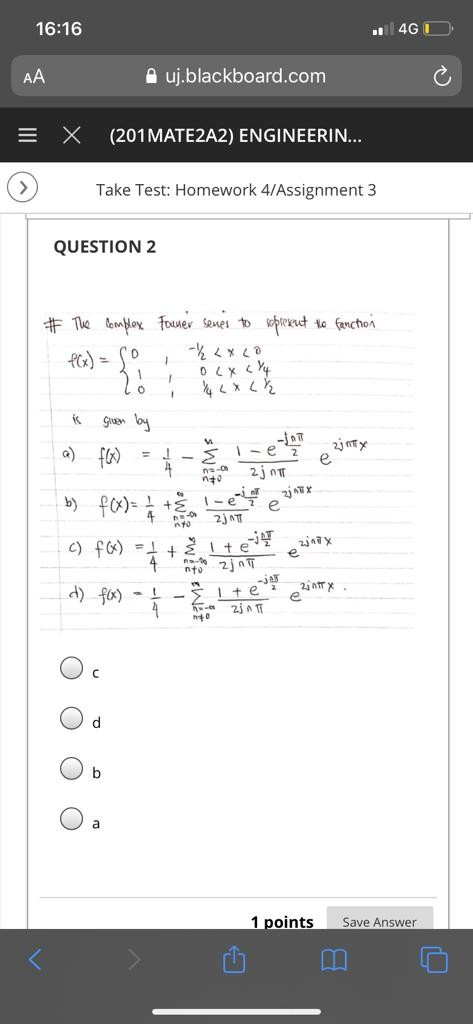 16:16
4G
AA
uj.blackboard.com
(201MATE2A2) ENGINEERIN...
Take Test: Homework 4/Assignment 3
QUESTION 2
# The Complex Fourier series to represent the function
f(x) = { 0 , -1/2 < x < 0
1 , 0 < x < 1/4
0 , 1/4 < x < 1/2
is given by
a) f(x) = 1/4 - ∑_{n=-∞, n≠0}^{∞} (1 - e^{-jnπ/2})/(2jnπ) e^{2jnπx}
b) f(x) = 1/4 + ∑_{n=-∞, n≠0}^{∞} (1 - e^{-jnπ/2})/(2jnπ) e^{2jnπx}
c) f(x) = 1/4 + ∑_{n=-∞, n≠0}^{∞} (1 + e^{-jnπ/2})/(2jnπ) e^{2jnπx}
d) f(x) = 1/4 - ∑_{n=-∞, n≠0}^{∞} (1 + e^{-jnπ/2})/(2jnπ) e^{2jnπx} .
c
d
b
a
1 points
Save Answer